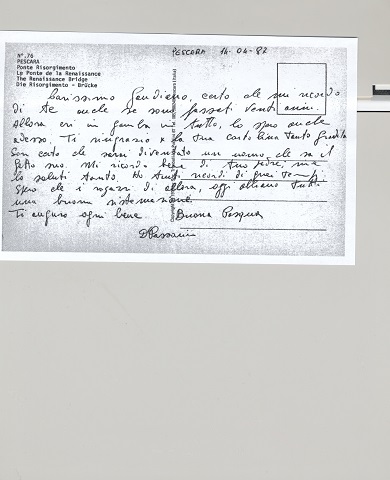 N°.76
PESCARA
Ponte Risorgimento
Le Ponte de la Renaissance
The Renaissance Bridge
Die Risorgimento - Brücke
PESCARA 14-04-82
Carissimo Gaudieno, certo che mi ricordo
di te anche se sono passati venti anni.
Allora eri in gamba in tutto, lo spero anche
adesso. Ti ringrazio x la tua cartolina tanto gradita
Son certo che sarai diventato un uomo, che sa il
fatto suo. Mi ricordo bene di tuo padre, ma
lo saluti tanto. Ho tanti ricordi di quei tempi.
Spero che i ragazzi di allora, oggi abbiano tutti
una buona sistemazione.
Ti auguro ogni bene Buona Pasqua